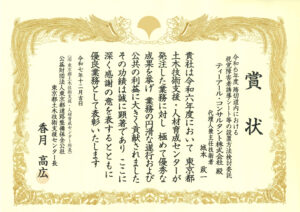 賞状
令和六年度 環境局道内における
視覚障害者誘導用シート等の設置方法検討委託
ティーアール・コンサルタント株式会社 殿
代理人兼主任技術者
城本 政一
貴社は令和六年度において 東京都
土木技術支援・人材育成センターが
発注した業務に対し 極めて優秀な
成果を挙げ 業務の円滑な遂行および
公共の利益に大きく貢献されました
その功績は誠に顕著であり ここに
深く感謝の意を表するとともに
優良業務として表彰いたします
令和七年十二月五日
公益財団法人東京都道路整備保全公社
東京都土木技術支援センター長
香月 高広